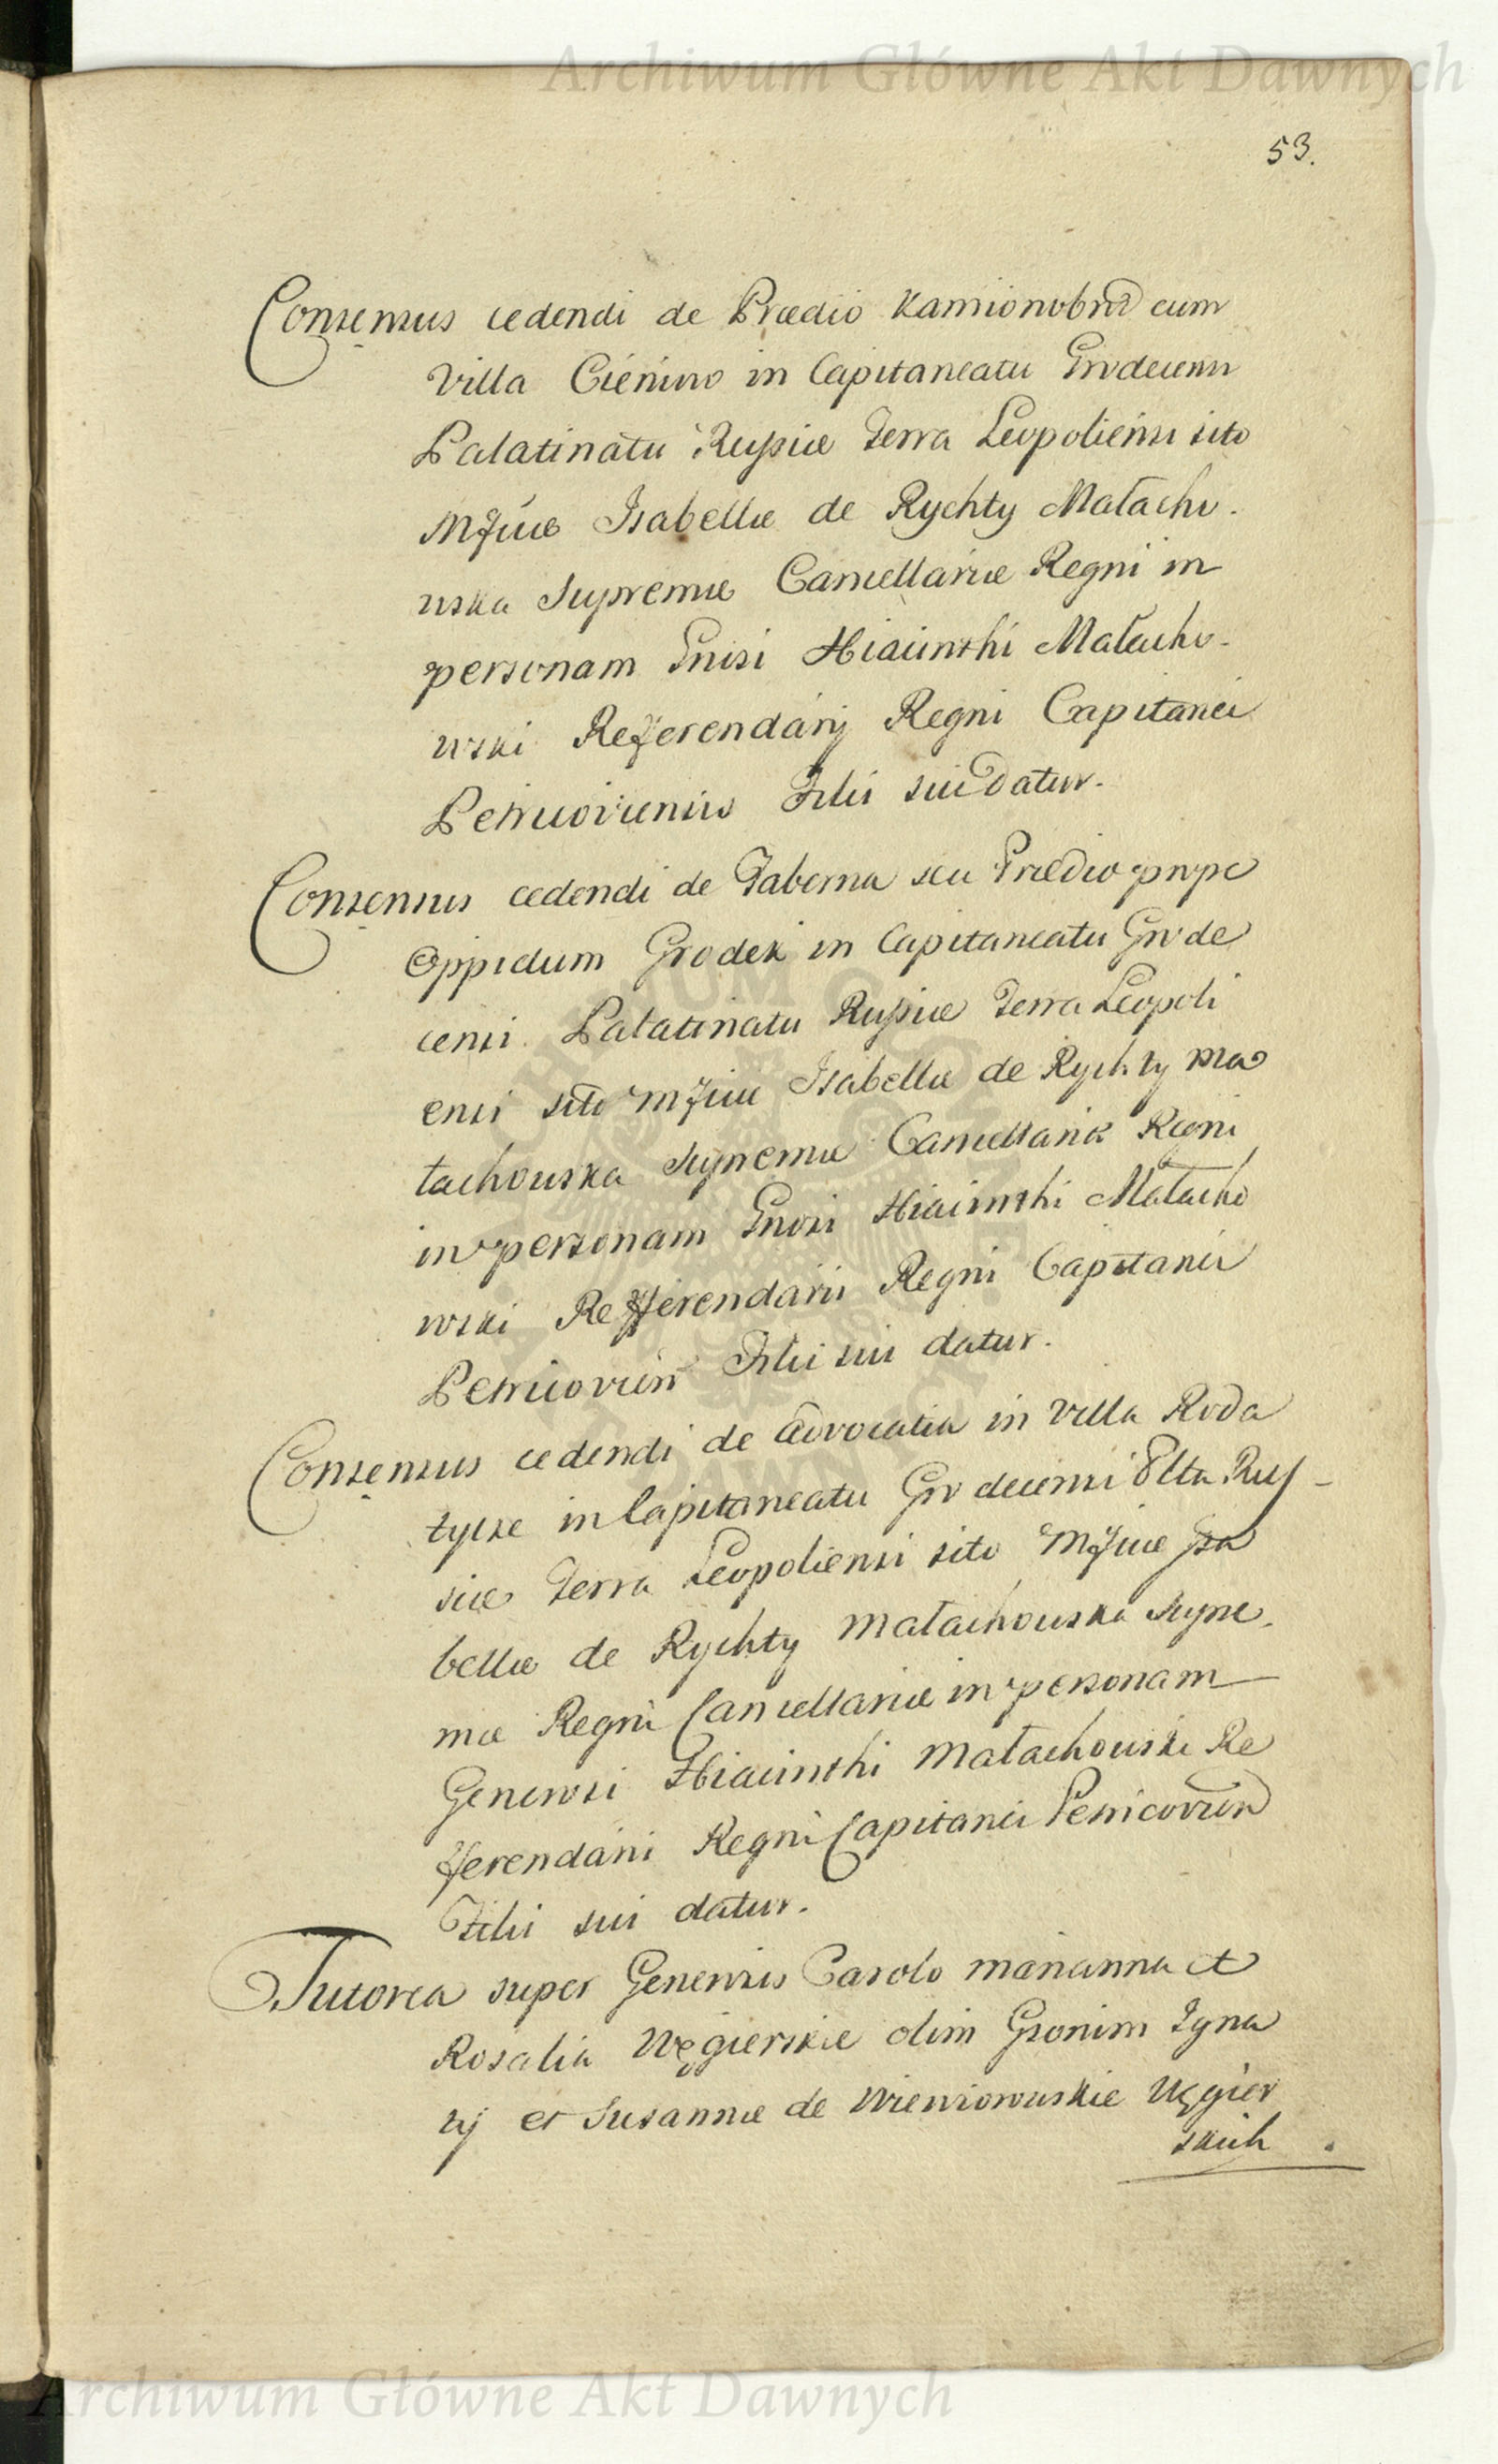 Archiwum Główne Akt Dawnych
53.
Consensus cedendi de Prædio Kamionobrod cum
Villa Cienino in Capitaneatu Grodecensi
Palatinatu Russiæ Terra Leopoliensi sito
Mficæ Isabellæ de Rychty Małacho-
wska Supremæ Cancellariæ Regni in
personam Gnisi Hiacinthi Małacho-
wski Referendarij Regni Capitanei
Petricoviensis Filii sui datur.
Consensus cedendi de Taberna seu Prædio prope
Oppidum Grodek in Capitaneatu Grode
censi Palatinatu Russiæ Terra Leopoli
ensi sito Mficæ Isabellæ de Rychty Ma
łachowska Supremæ Cancellariæ Regni
in personam Gnosi Hiacinthi Małacho
wski Refferendarii Regni Capitanei
Petricovien Filii sui datur.
Consensus cedendi de Advocatia in Villa Roda
tycze in Capitaneatu Grodecensi Pltu Rus-
siæ Terra Leopoliensi sito Mficæ Isa
bellæ de Rychty Małachowska Supre-
mæ Regni Cancellariæ in personam
Generosi Hiacinthi Małachowski Re
fferendarii Regni Capitanei Petricovien
Filii sui datur.
Tutorea super Generosis Carolo Marianna et
Rosalia Węgierskie olim Gsorum Igna
cij et Susannæ de Wieniowskie Węgier
skich
Archiwum Główne Akt Dawnych